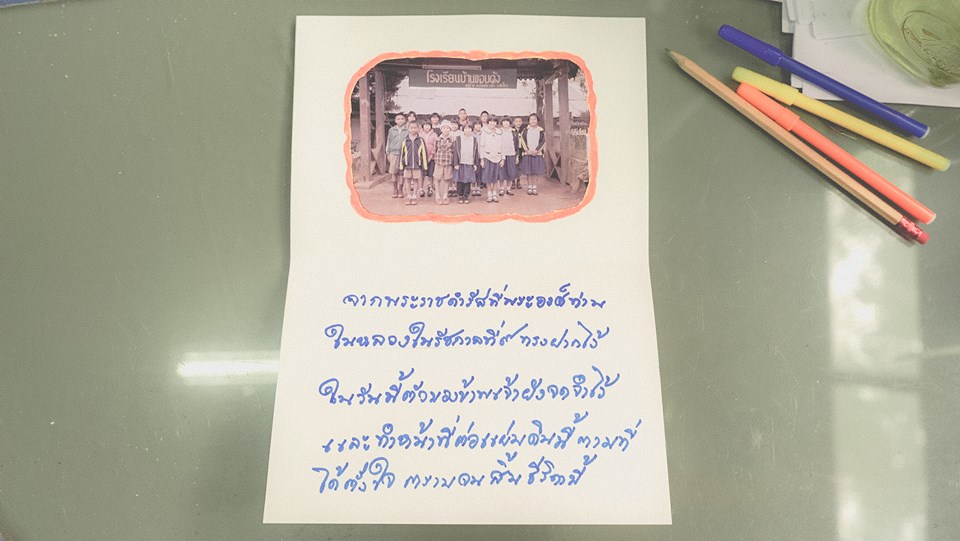 โรงเรียนบ้านขอบด้ง
จากพระราชดำรัสที่พระองค์ท่าน
ในหลวงในรัชกาลที่๙ ทรงฝากไว้
ในวันนี้ตัวของข้าพเจ้ายังจดจำไว้
และทำหน้าที่ต่อแผ่นดินนี้ตามที่
ได้ตั้งใจ ตราบจนสิ้นชีวิตนี้